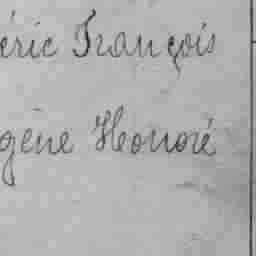 éric François
gène Honoré